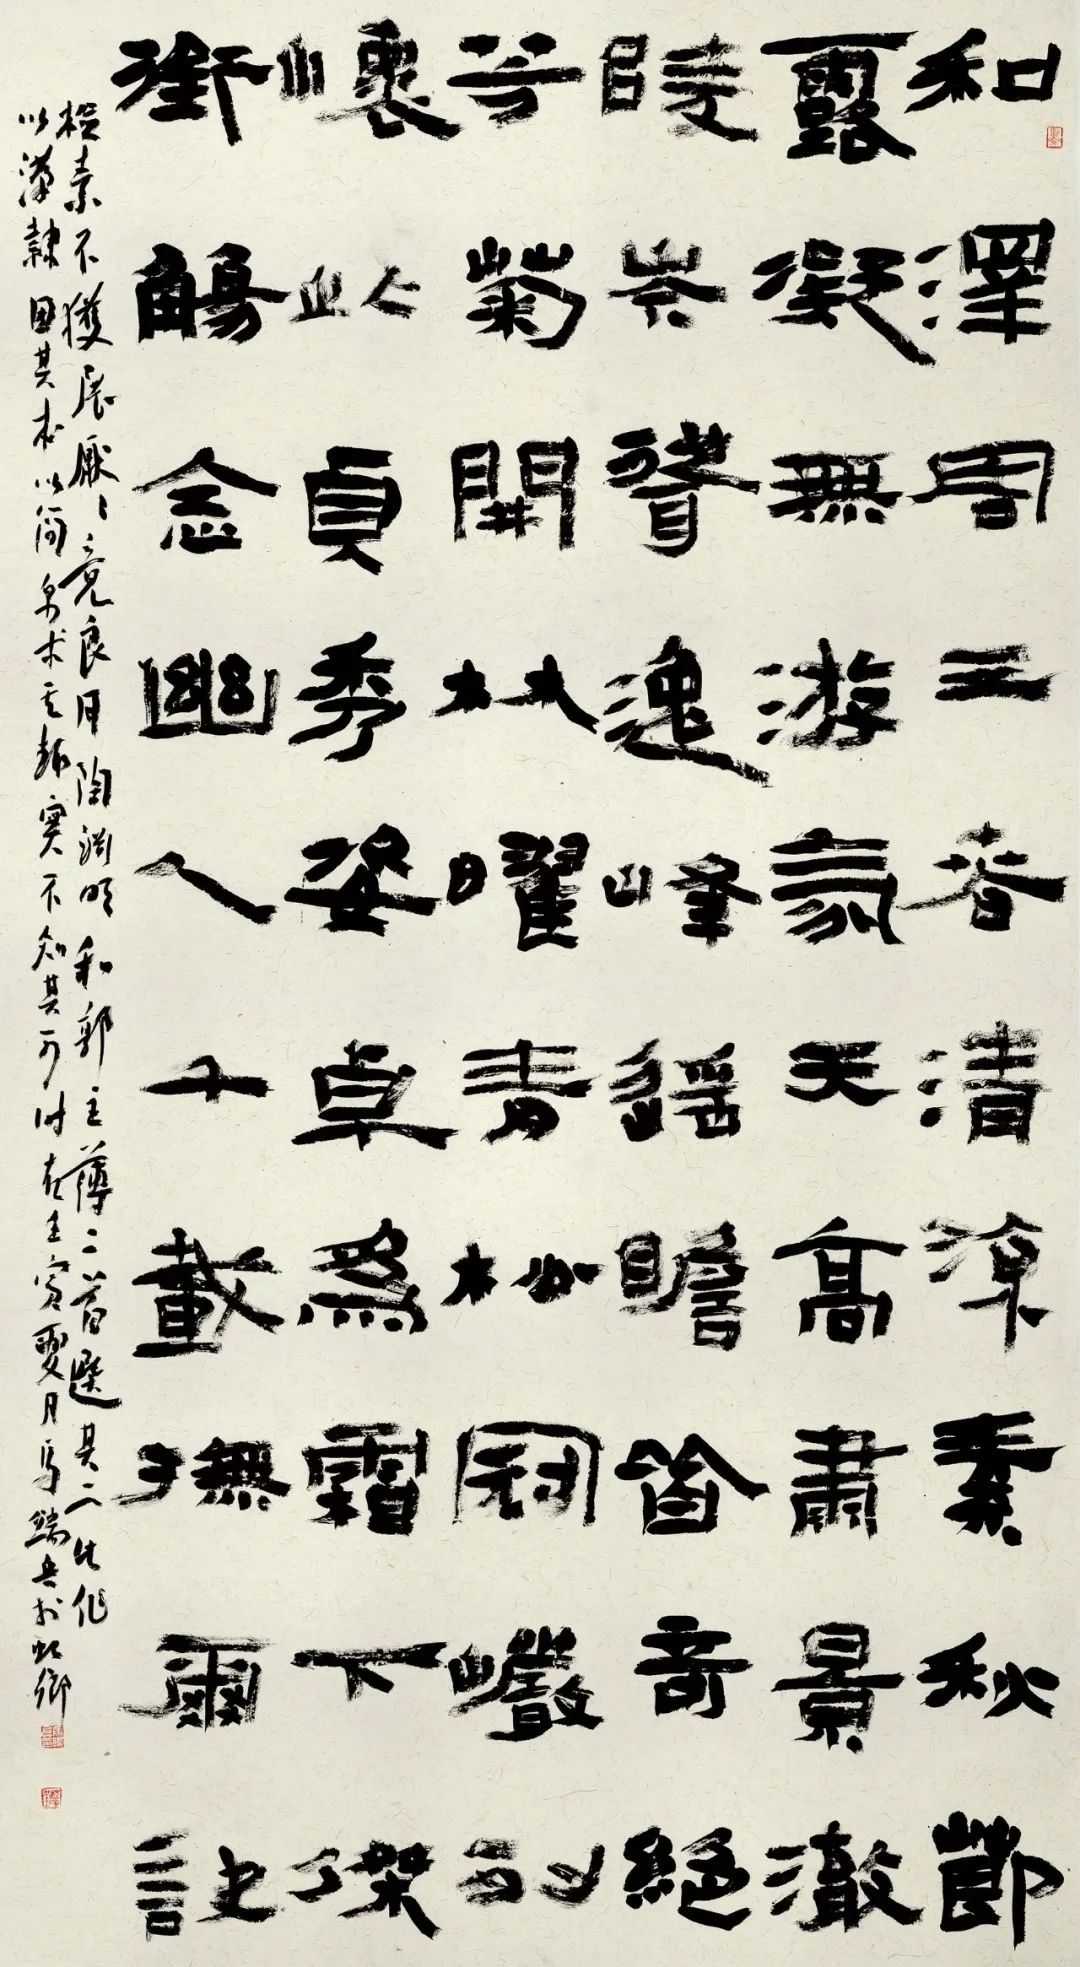 和澤周三春清涼素秋節
露凝無游氛天高肅景澈
陵岑聳逸峰遙瞻皆奇絕
芳菊開林曜青松冠巖列
懷此貞秀姿卓為霜下傑
銜觴念幽人千載撫爾訣
檢素不獲展厭々竟良月陶淵明和郭主薄二首選其二此作
以漢隸固其本以簡帛求其趣實不知其可时在壬寅夏月馬端兵於虹鄉